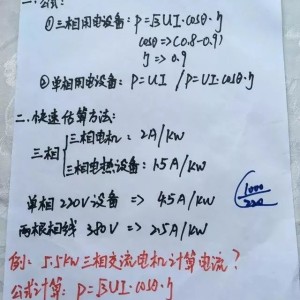 一.公式:
①三相用电设备: P=√3UI·cosθ·η
cosθ=>(0.8-0.9)
η=>0.9
②单相用电设备: P=UI / P=UI·cosθ·η
二.快速估算方法:
三相电机: 2A/KW
三相
三相电热设备: 1.5A/KW
单相 220V设备 => 4.5A/KW
1000/220
两根相线 380V => 2.5A/KW
例: 5.5KW三相交流电机计算电流?
公式计算: P=√3UI·cosθ·η